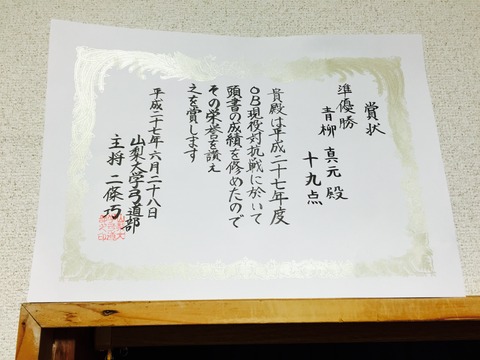 賞状
準優勝
青柳真元殿
十九点
貴殿は平成二十七年度
OB現役対抗戦に於いて
頭書の成績を修めたので
その栄誉を讃え
之を賞します
平成二十七年六月二十八日
山梨大学弓道部
主将二條巧